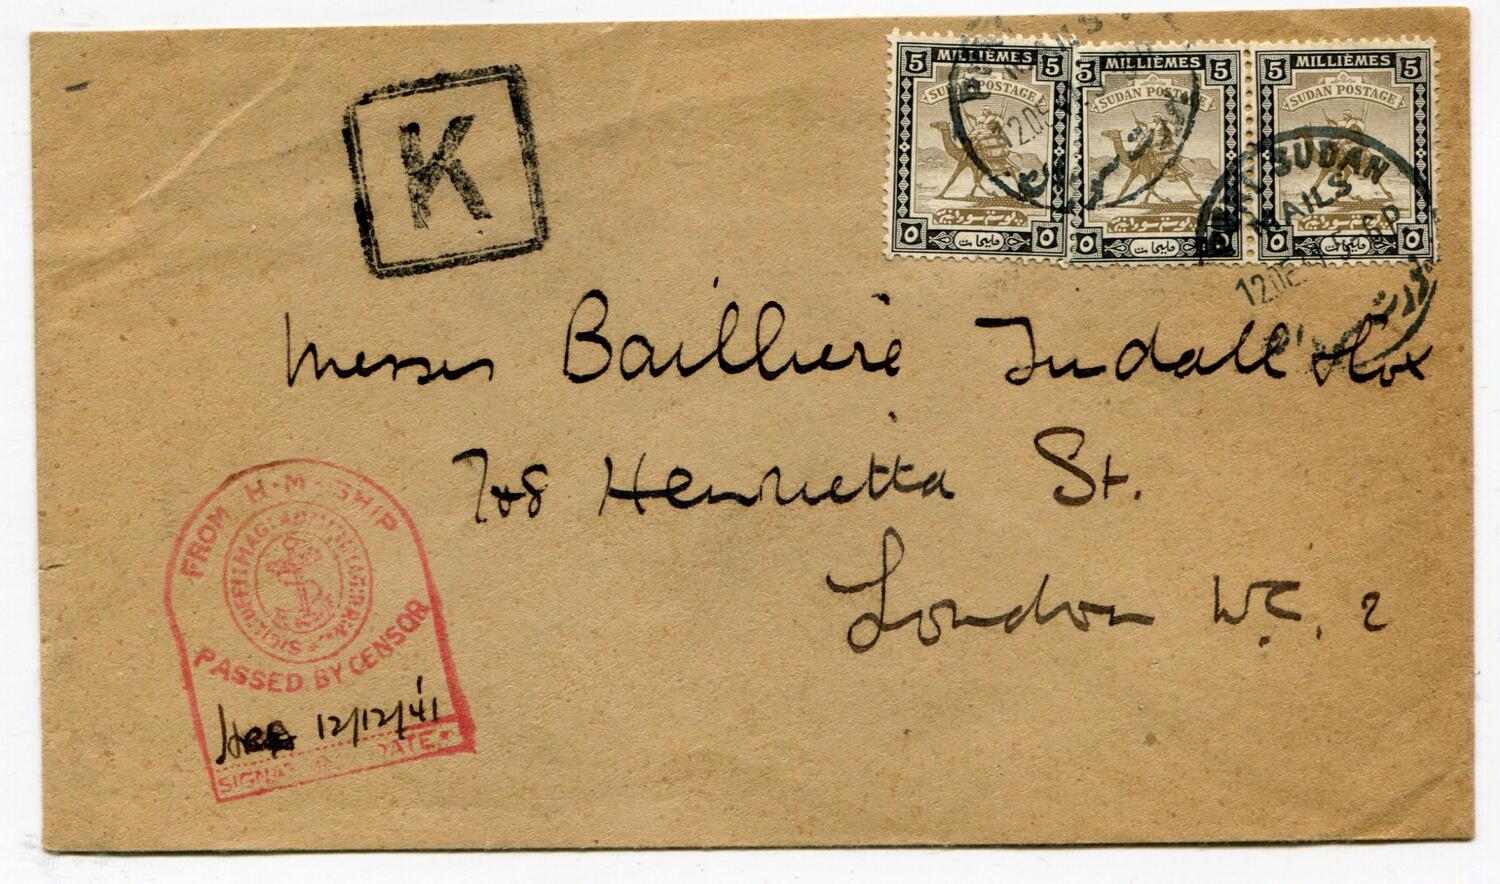 K
5 MILLIÈMES 5
SUDAN POSTAGE
٥ مليمات ٥
5 MILLIÈMES 5
SUDAN POSTAGE
٥ مليمات ٥
5 MILLIÈMES 5
SUDAN POSTAGE
٥ مليمات ٥
MAILS
12 DE
SUDAN
MAILS
12 DE 41 6 P
Messrs Bailliere Tindall & Cox
7 & 8 Henrietta St.
London W.C. 2
FROM H.M. SHIP
PASSED BY CENSOR
12/12/41
DATE